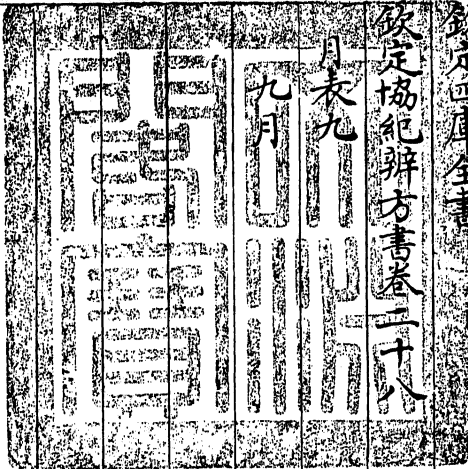 欽定四庫全書
欽定協紀辨方書卷二十八
月表九
九月
文淵
閣寶